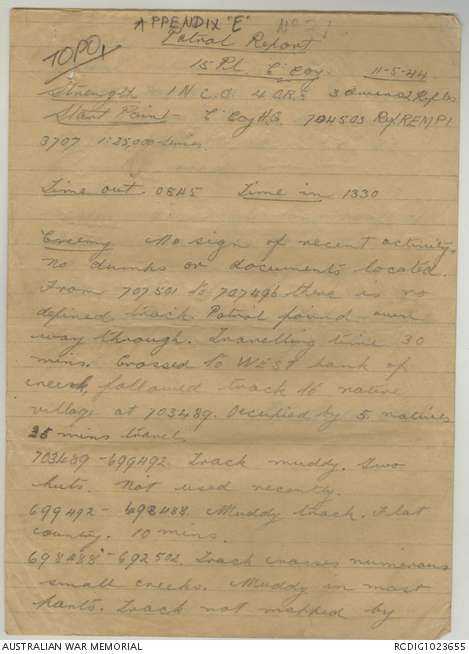 APPENDIX "E"
TOPO,
Patrol Report
15 Pl "C" Coy 11-5-44
Strength 1 N.C.O. 4 O.R.s 3 Owens 2 Rifles
Start Point - "C" Coy H.Q. 704503 Ref REMPI
3707 1:25,000 series.
Time out 0845 Time in 1330
Enemy No sign of recent activity.
No dumps or documents located.
From 707501 to 707496 there is no
defined track. Patrol found own
way through. Travelling time 30
mins. Crossed to WEST bank of
creek, followed track to native
village at 703489. Occupied by 5 natives
35 mins travel.
703489-699492. Track muddy. Two
huts. Not used recently.
699492-698488. Muddy track. Flat
country. 10 mins.
698488-692502. Track crosses numerous
small creeks. Muddy in most
parts. Track not mapped by
AUSTRALIAN WAR MEMORIAL
RCDIG1023655